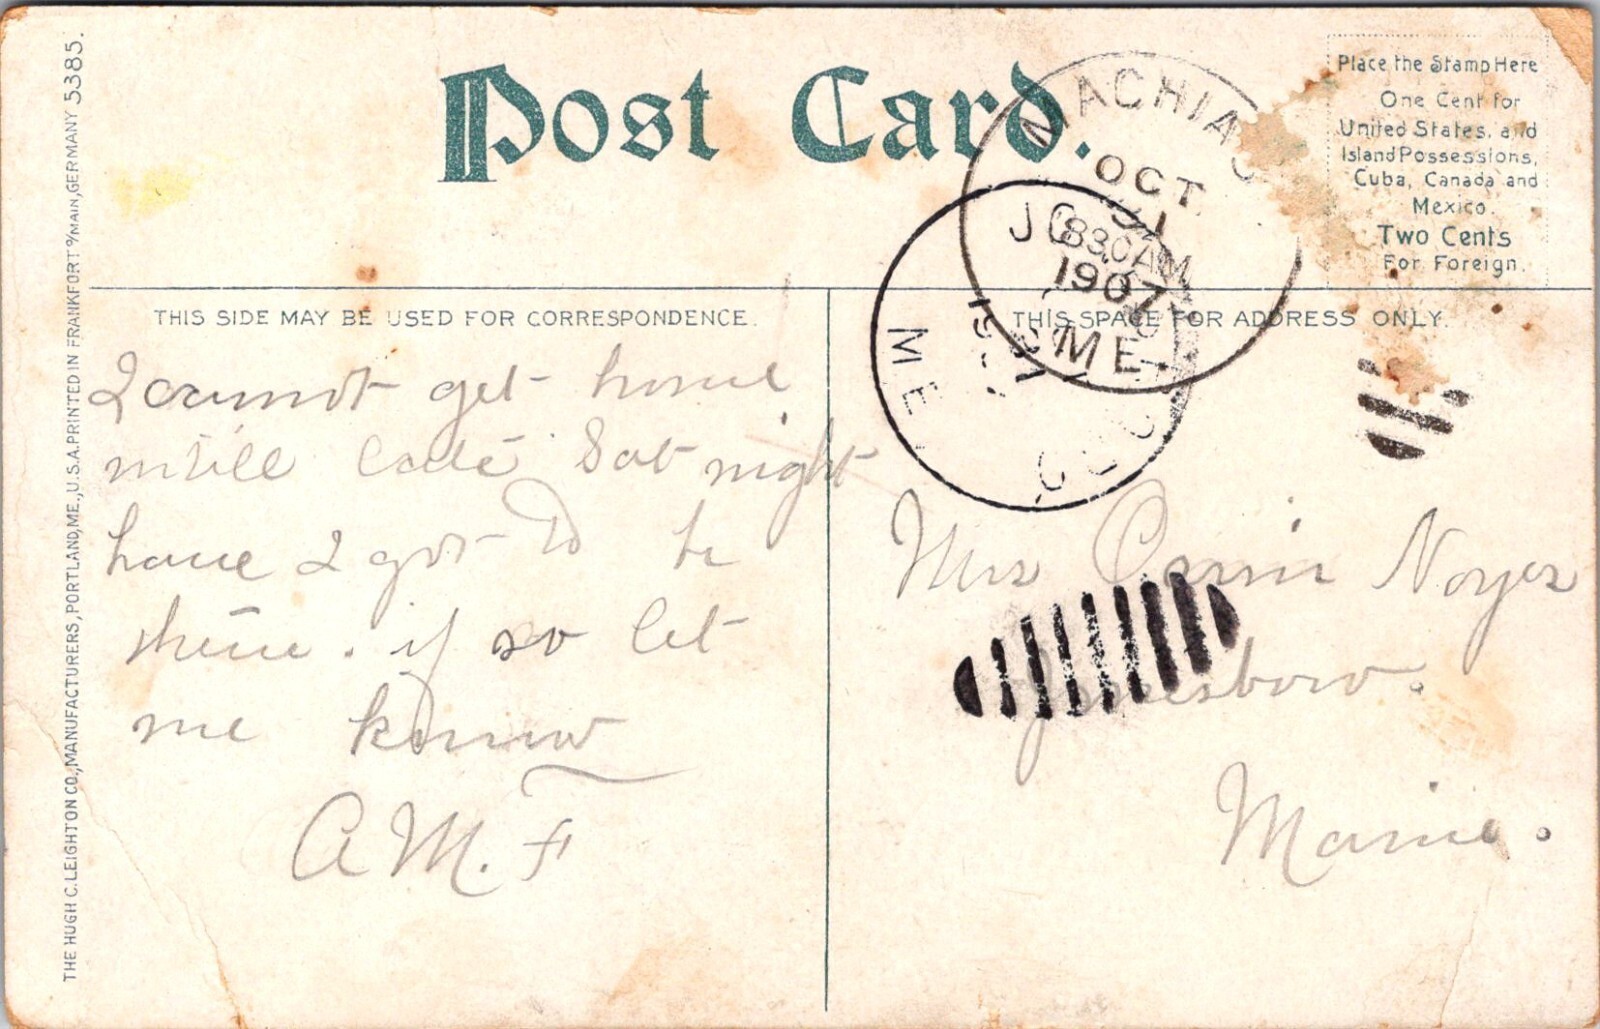 Post Card.
Place the Stamp Here
One Cent for
United States, and
Island Possessions,
Cuba, Canada and
Mexico.
Two Cents
For Foreign.
MACHIAS
OCT
31
830AM
1907
ME.
ME
THIS SIDE MAY BE USED FOR CORRESPONDENCE.
THIS SPACE FOR ADDRESS ONLY.
I cannot get home
until late Sat night
have I got to be
there. if so let
me know
A. M. F
Mrs Noyes
Jonesboro.
Maine.
THE HUGH C. LEIGHTON CO., MANUFACTURERS, PORTLAND, ME., U.S.A. PRINTED IN FRANKFORT o/MAIN, GERMANY 5385.